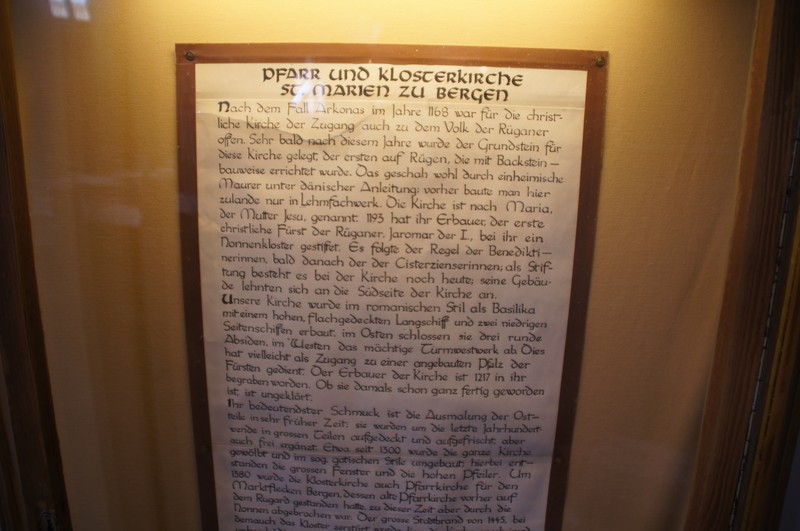 PFARR UND KLOSTERKIRCHE
ST. MARIEN ZU BERGEN
Nach dem Fall Arkonas im Jahre 1168 war für die christ-
liche Kirche der Zugang auch zu dem Volk der Rüganer
offen. Sehr bald nach diesem Jahre wurde der Grundstein für
diese Kirche gelegt, der ersten auf Rügen, die mit Backstein-
bauweise errichtet wurde. Das geschah wohl durch einheimische
Maurer unter dänischer Anleitung; vorher baute man hier
zulande nur in Lehmfachwerk. Die Kirche ist nach Maria,
der Mutter Jesu, genannt. 1193 hat ihr Erbauer, der erste
christliche Fürst der Rüganer, Jaromar der I., bei ihr ein
Nonnenkloster gestiftet. Es folgte der Regel der Benedikti-
nerinnen, bald danach der der Cisterzienserinnen; als Stif-
tung besteht es bei der Kirche noch heute; seine Gebäu-
de lehnten sich an die Südseite der Kirche an.
Unsere Kirche wurde im romanischen Stil als Basilika
mit einem hohen, flachgedeckten Langschiff und zwei niedrigen
Seitenschiffen erbaut, im Osten schlossen sie drei runde
Absiden, im Westen das mächtige Turmwestwerk ab. Dies
hat vielleicht als Zugang zu einer angebauten Pfalz der
Fürsten gedient. Der Erbauer der Kirche ist 1217 in ihr
begraben worden. Ob sie damals schon ganz fertig geworden
ist, ist ungeklärt.
Ihr bedeutendster Schmuck ist die Ausmalung der Ost-
teile in sehr früher Zeit; sie wurden um die letzte Jahrhundert-
wende in grossen Teilen aufgedeckt und aufgefrischt, aber
auch frei ergänzt. Etwa seit 1300 wurde die ganze Kirche
gewölbt und im sog. gotischen Stile umgebaut; hierbei ent-
standen die grossen Fenster und die hohen Pfeiler. Um
1380 wurde die Klosterkirche auch Pfarrkirche für den
Marktflecken Bergen, dessen alte Pfarrkirche vorher auf
dem Rugard gestanden hatte, zu dieser Zeit aber durch die
Nonnen abgebrochen war. Der grosse Stadtbrand von 1445, bei
demauch das Kloster zerstört wurde